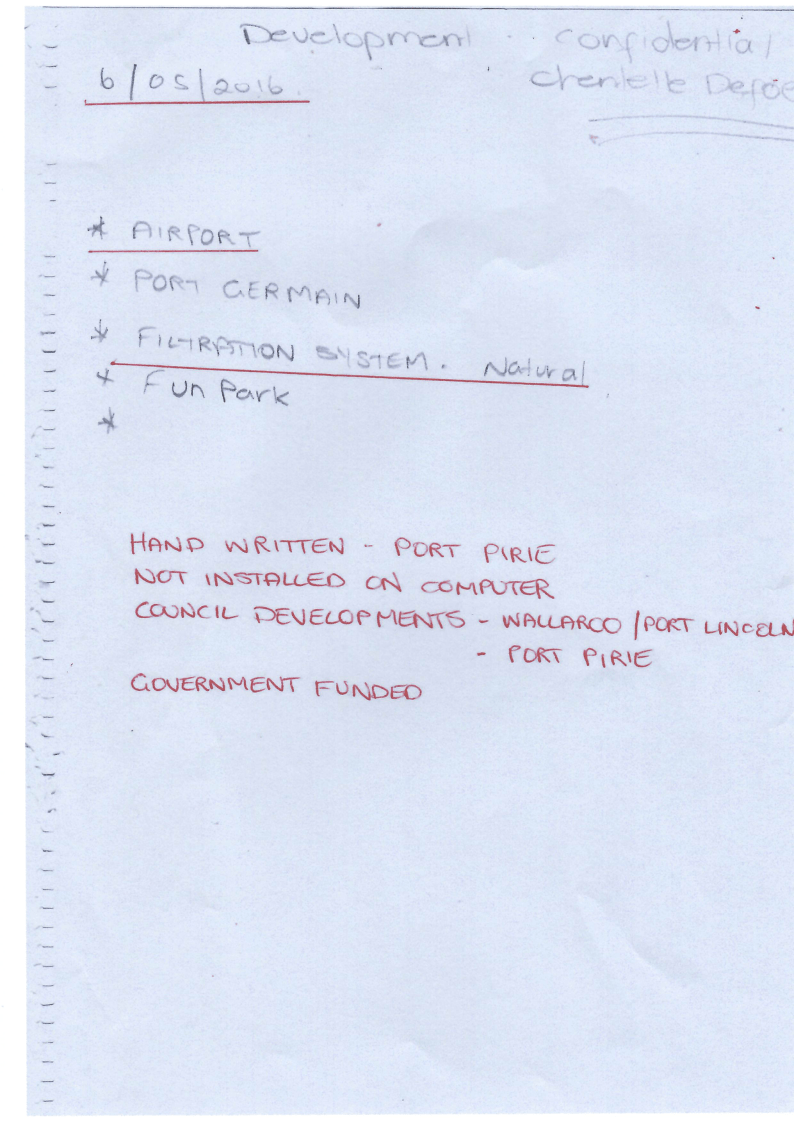 Development confidential
6/05/2016. Chentelle Defoe
* AIRPORT
* PORT GERMAIN
* FILTRATION SYSTEM. Natural
* Fun Park
*
HAND WRITTEN - PORT PIRIE
NOT INSTALLED ON COMPUTER
COUNCIL DEVELOPMENTS - WALLAROO / PORT LINCOLN
- PORT PIRIE
GOVERNMENT FUNDED